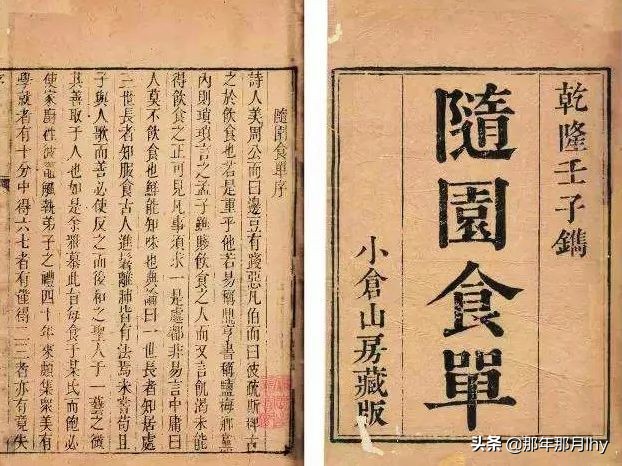 乾隆壬子鐫
隨園食單
小倉山房藏版
隨園食單序
詩人美周公而曰籩豆有踐惡凡伯而曰彼疏斯稗古
之於飲食也若是重乎他若易稱鼎亨書稱鹽梅鄉黨
內則瑣瑣言之孟子雖賤飲食之人而又言飢渴未能
得飲食之正可見凡事須求一是處都非易言中庸曰
人莫不飲食也鮮能知味也典論曰一世長者知居處
三世長者知服食古人進鬐離肺皆有法焉未嘗苟且
子與人歌而善必使反之而後和之聖人于一藝之微
其善取于人也如是余雅慕此旨每食于某氏而飽必
使家廚往彼竈觚執弟子之禮四十年來頗集衆美有
學就者有十分中得六七者有僅得二三者亦有竟失
头条 @那年那月lhy